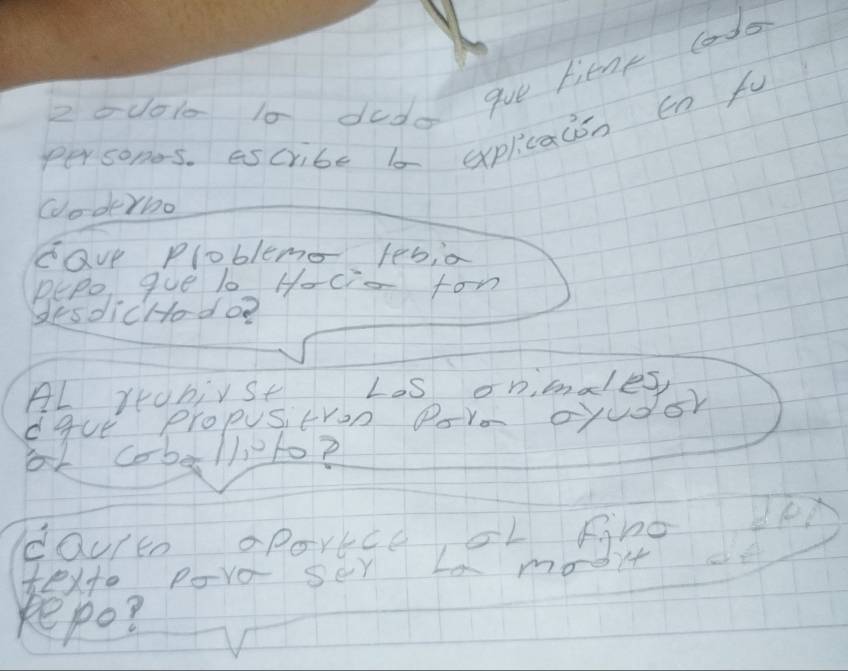 2 aclara la duda que tiene cada
personas. escribe la explicación en tu
cuaderno
¿Que Problema tenia
pepo que lo Hacia tan
desdicHado?
AL reunirse Los animales,
¿que propusieron Para ayudar
al caballito?
¿Quien aparece al Fina del
texto para ser La madre de
Pepo?